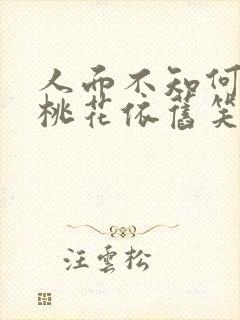 人而不知何
桃花依舊笑
汪雲松